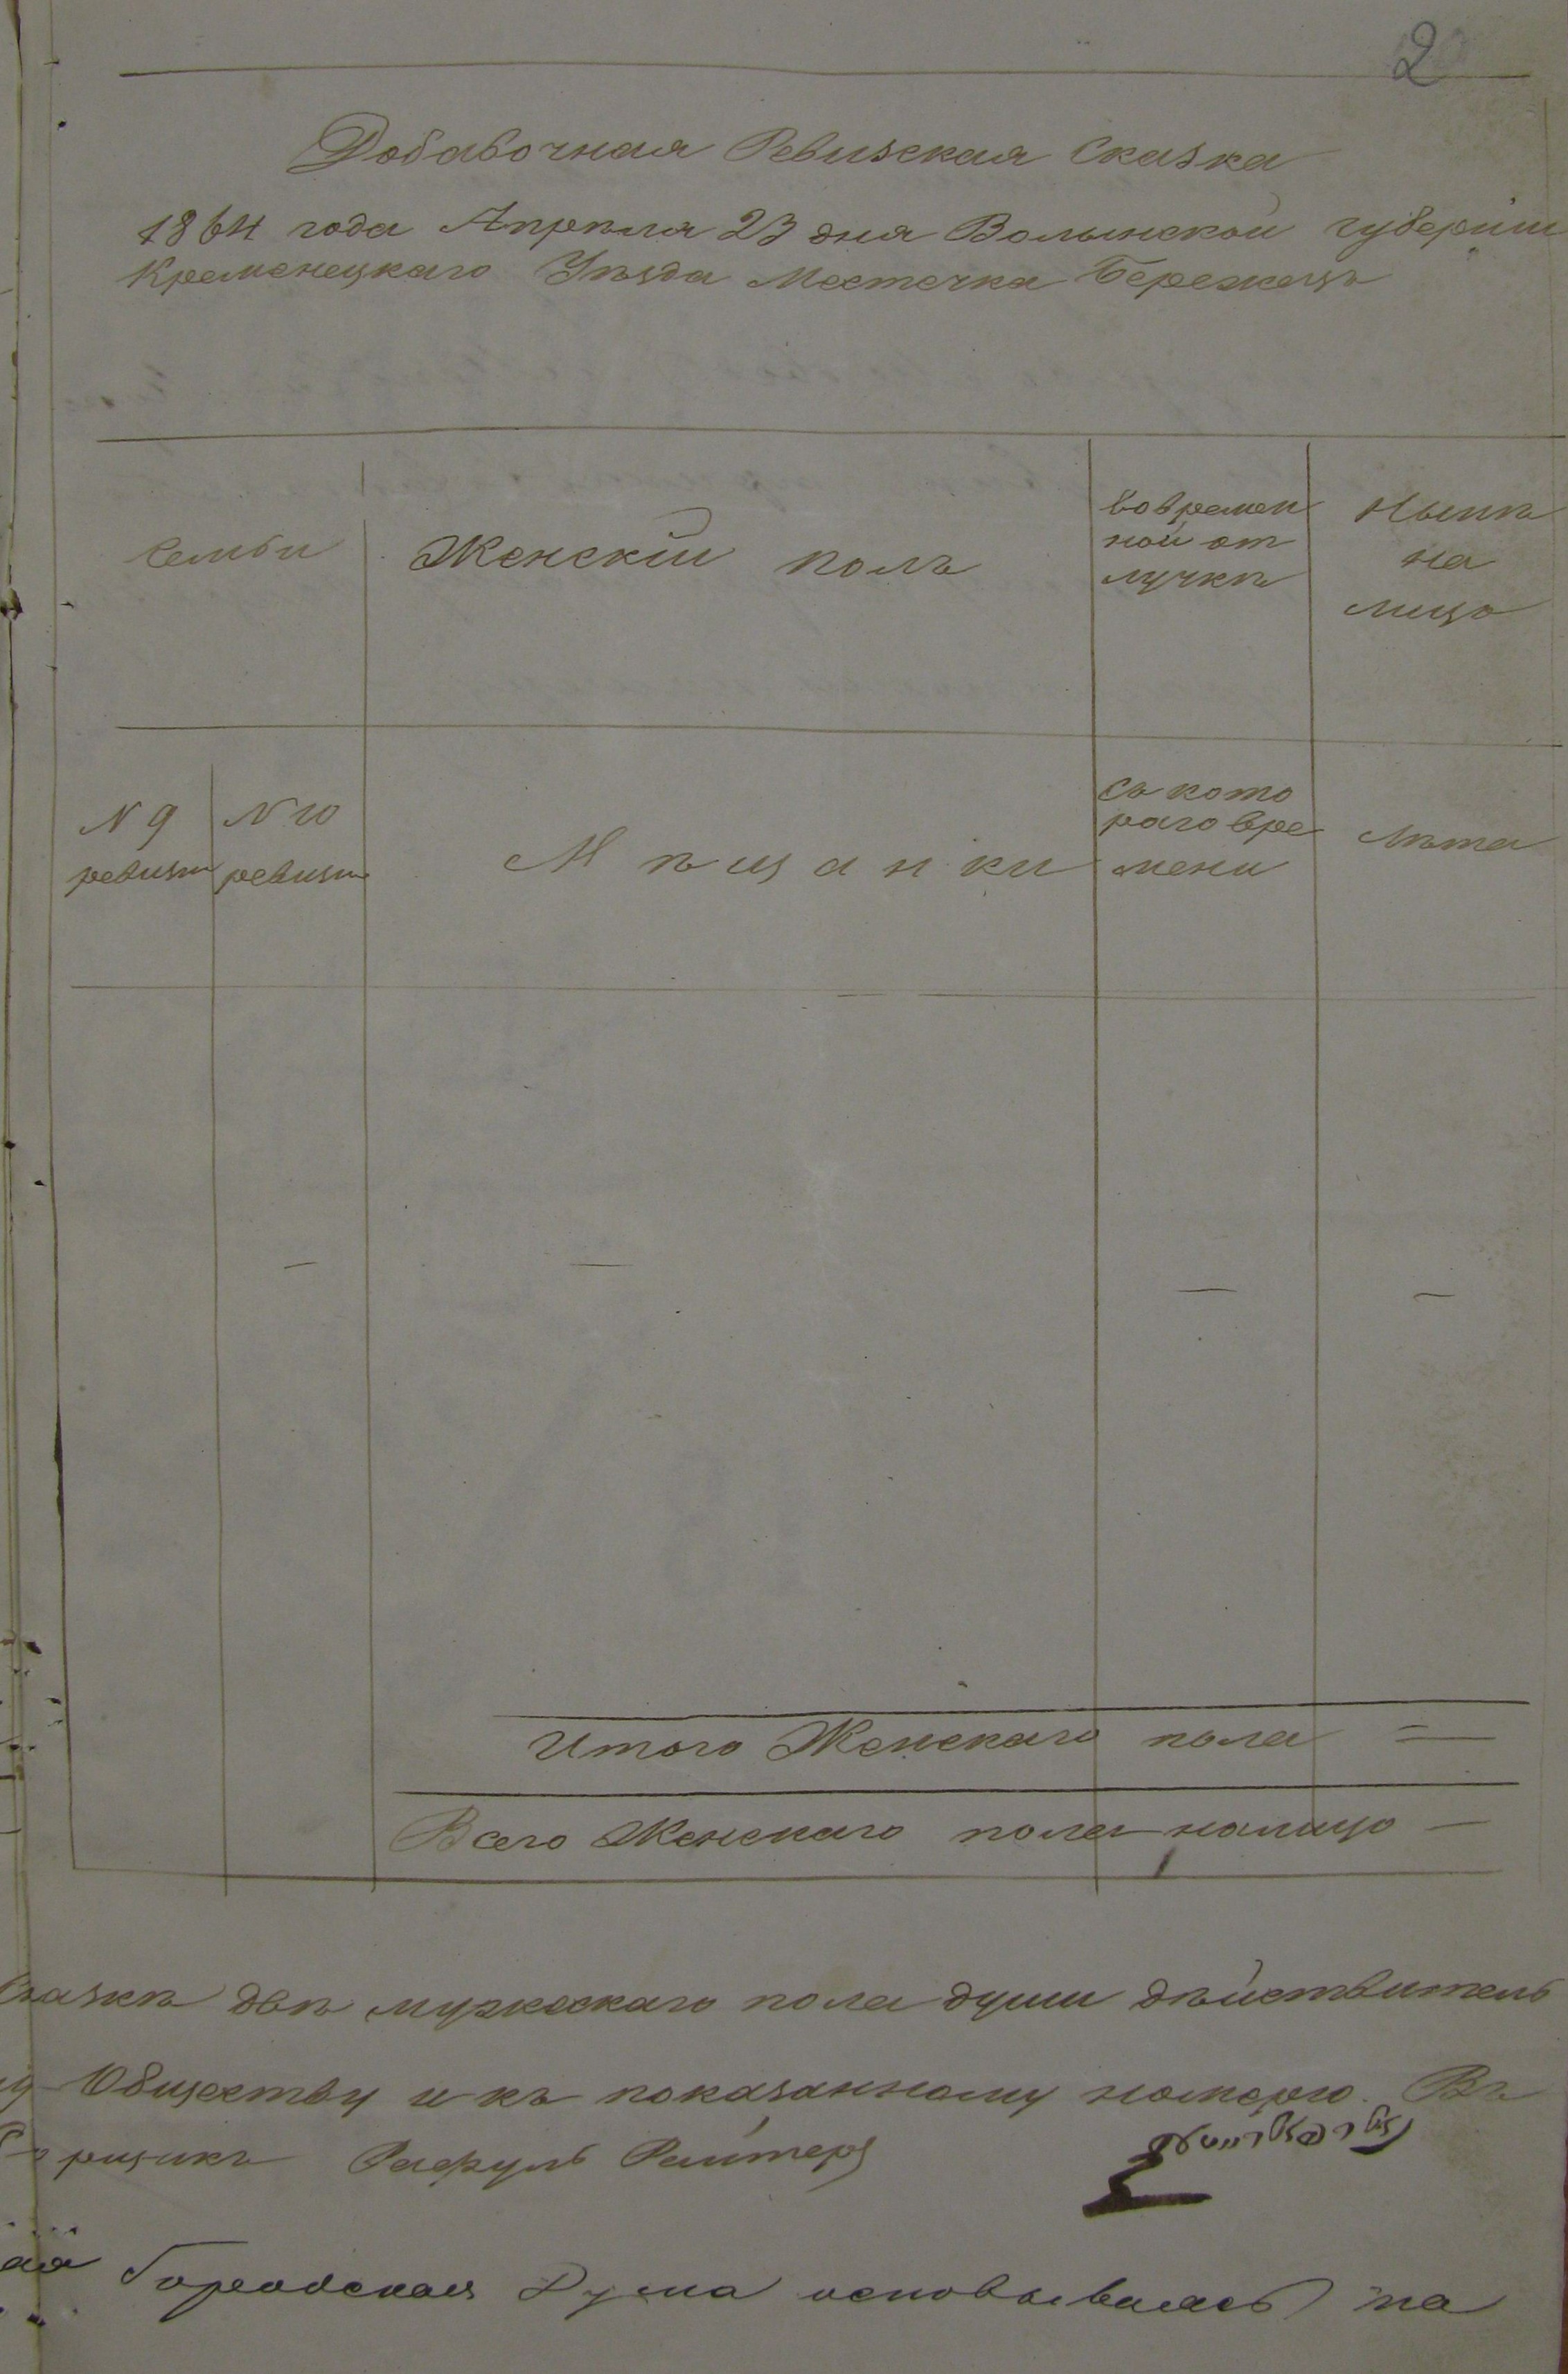 2
Добавочная Ревизская Сказка
1864 года Апрѣля 23 дня Волынской губерніи
Кременецкаго Уѣзда Местечка Бережецъ
Семьи
Женскій полъ
во времен
ной от
лучкѣ
Нынѣ
на
лицо
N 9
ревизіи
N 10
ревизіи
Мѣщанки
Съ кото
раго вре
мени
Лѣта
—
—
—
—
Итого Женскаго пола =
Всего Женскаго пола налицо —
Сказкѣ двѣ мужескаго пола души дѣйствитель
Обществу и къ показанному номерю. Въ
Рафуль Райтер
Городская Дума основываясь на